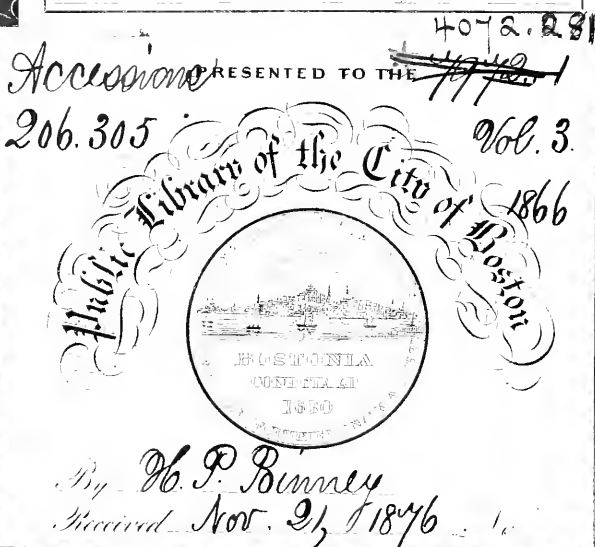 4072.281
Accessions PRESENTED TO THE
206.305 Vol. 3.
1866
Public Library of the City of Boston
BOSTONIA
CONDITA AD
1630
By H. P. Binney
Received Nov. 21, 1876